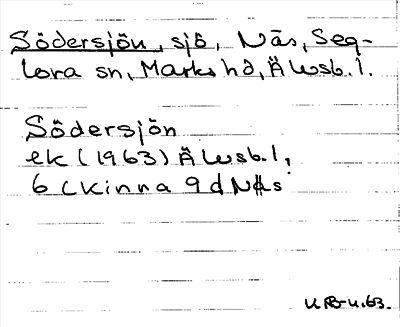 Södersjön, sjö, Näs, Seg-
lora sn, Marks hd, Älvsb. l.
Södersjön
ek (1963) Älvsb. l,
6 c Kinna 9 d Näs